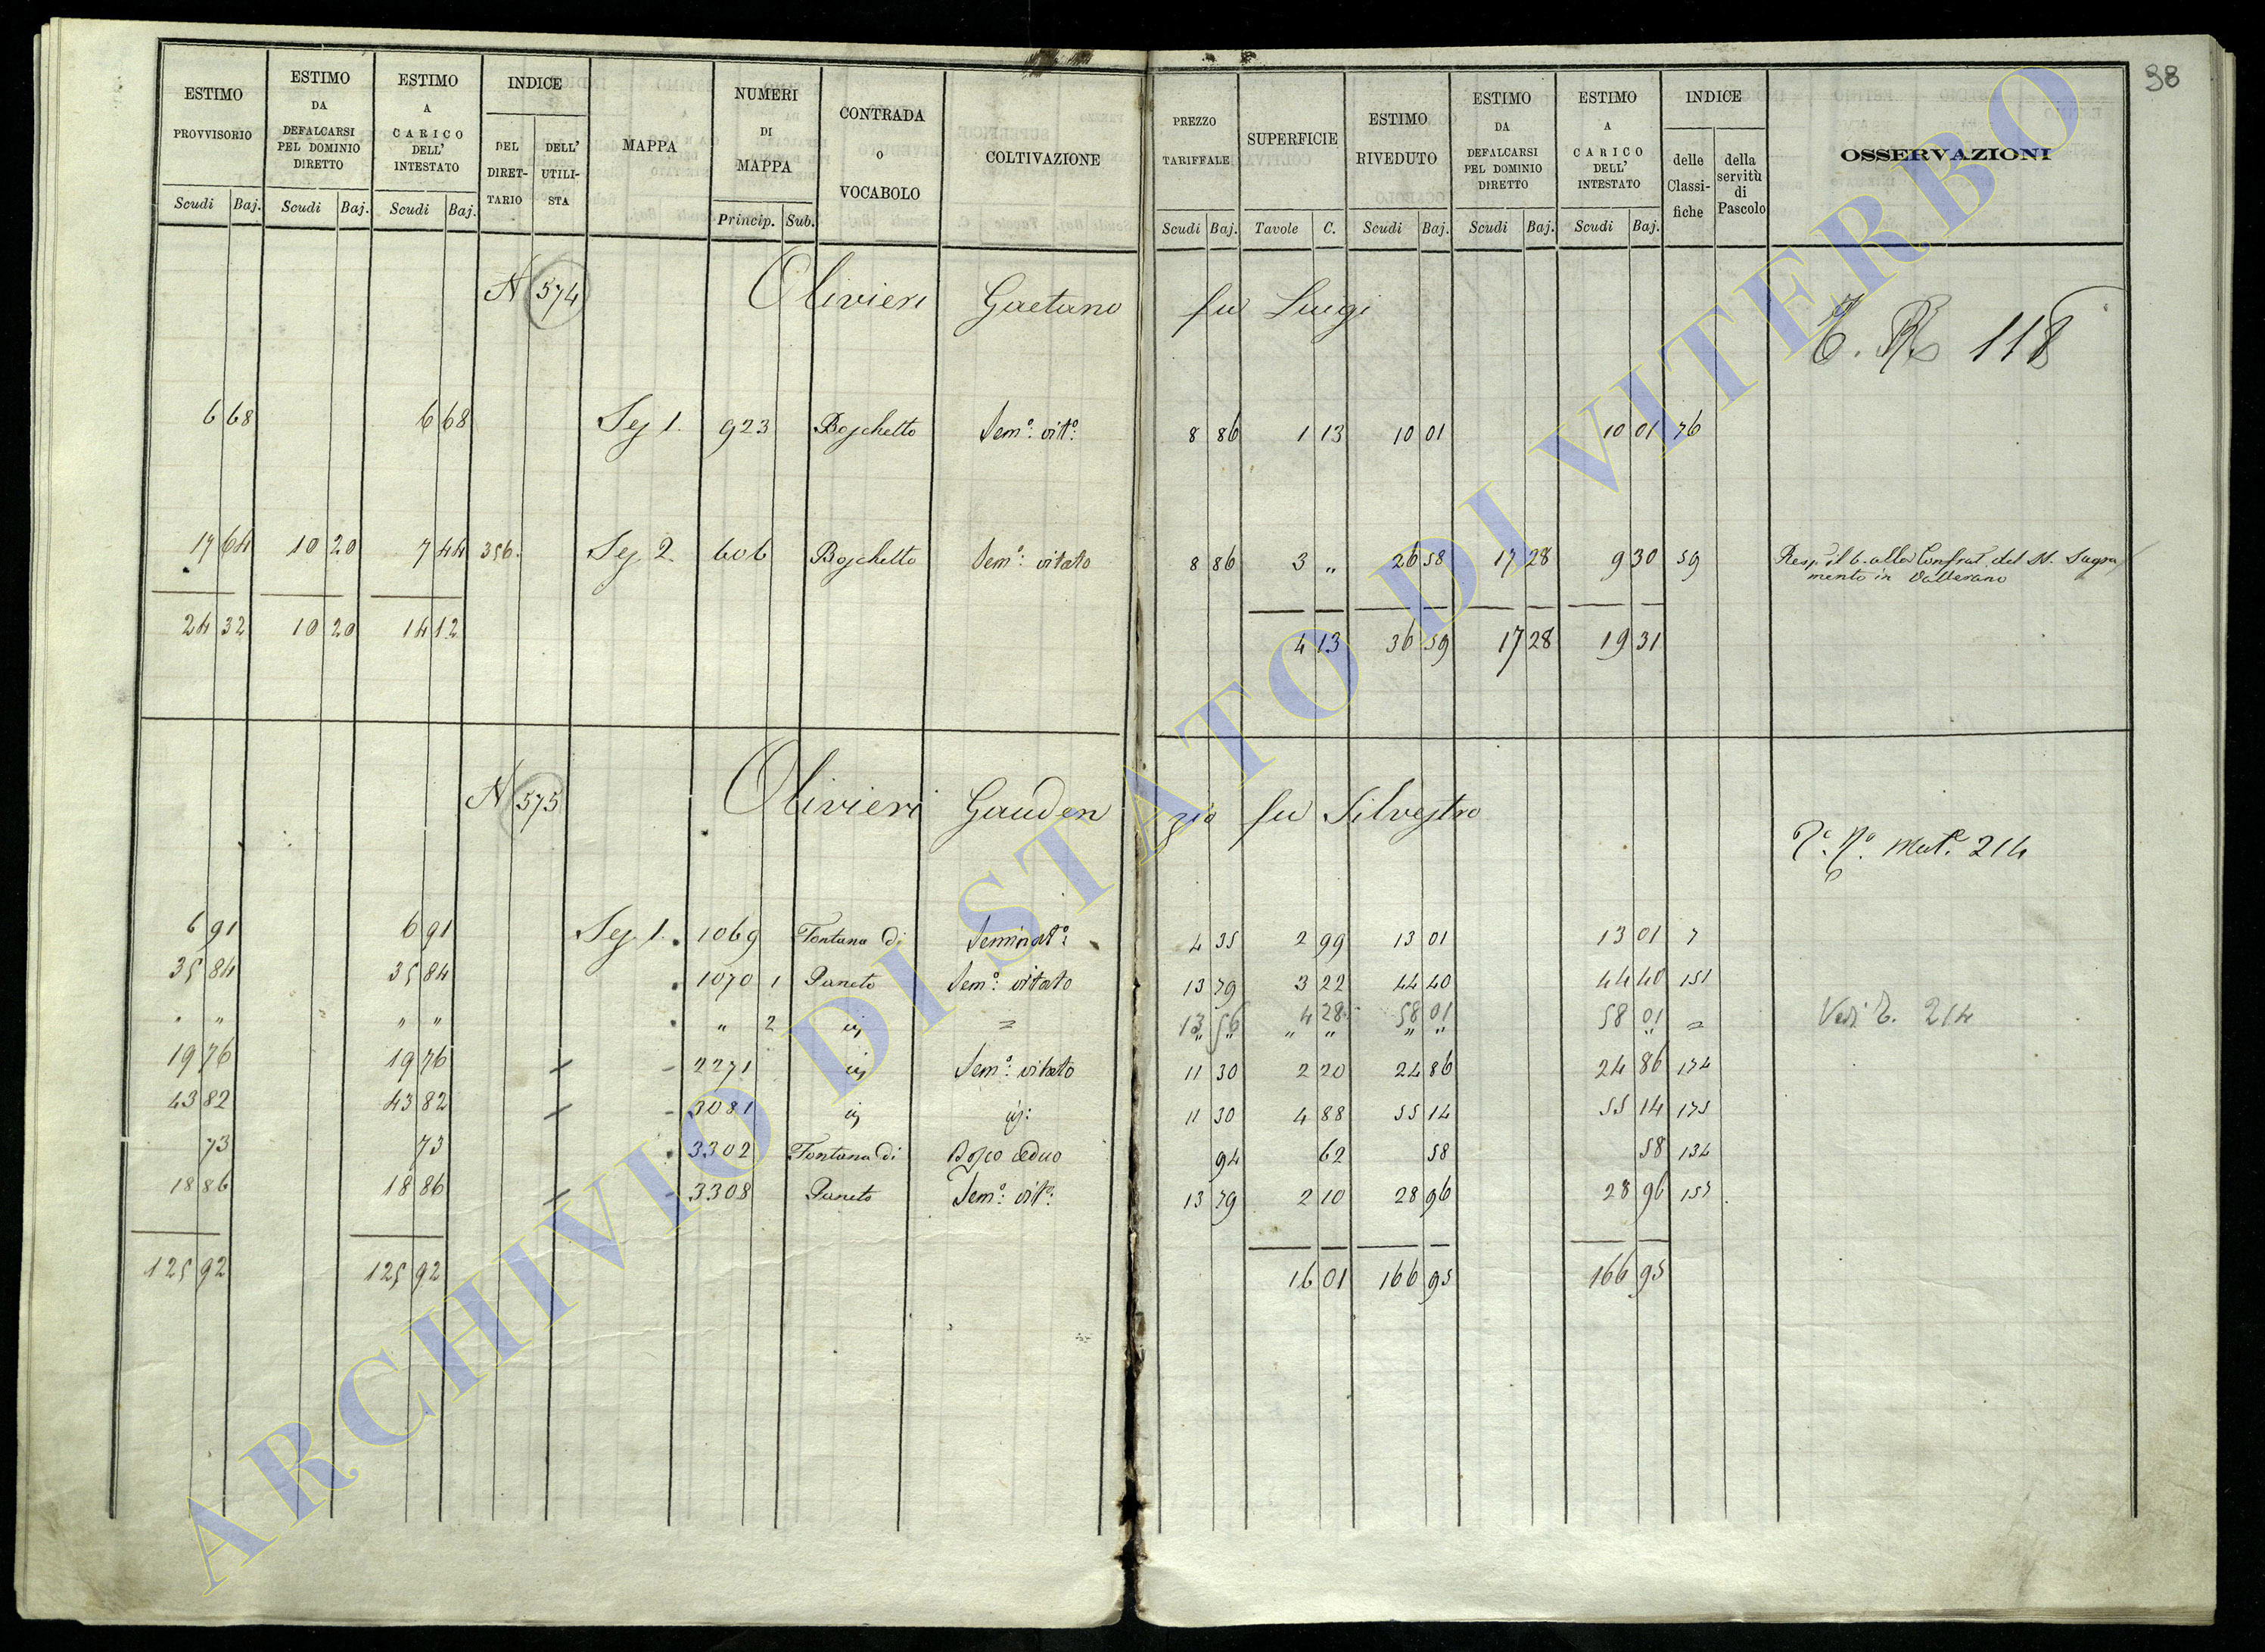 98
ESTIMO PROVVISORIO | ESTIMO DA DEFALCARSI PEL DOMINIO DIRETTO | ESTIMO A CARICO DELL' INTESTATO | INDICE | MAPPA | NUMERI DI MAPPA | CONTRADA O VOCABOLO | COLTIVAZIONE | PREZZO TARIFFALE | SUPERFICIE | ESTIMO RIVEDUTO | ESTIMO DA DEFALCARSI PEL DOMINIO DIRETTO | ESTIMO A CARICO DELL' INTESTATO | INDICE | OSSERVAZIONI
DEL DIRET-TARIO | DELL' UTILI-STA | delle Classi-fiche | della servitù di Pascolo
Scudi | Baj. | Scudi | Baj. | Scudi | Baj. | Princip. | Sub. | Scudi | Baj. | Tavole | C. | Scudi | Baj. | Scudi | Baj. | Scudi | Baj.
N 574 Olivieri Gaetano fu Luigi
118
6 68 | 6 68 | Sez 1. | 923 | Boschetto | Sem.o vit.o | 8 86 | 1 13 | 10 01 | 10 01 | 76
17 64 | 10 20 | 7 44 | 356. | Sez. 2. | 606 | Boschetto | Sem.o vitato | 8 86 | 3 „ | 26 58 | 17 28 | 9 30 | 59 | Resp. il 6. alla Confrat. del SS. Sagra
mento in Vallerano
24 32 | 10 20 | 14 12 | 4 13 | 36 59 | 17 28 | 19 31
N 575 Olivieri Gauden zio fu Silvestro
Mut.e 214
6 91 | 6 91 | Sez. 1. | 1069 | Fontana di | Seminat.o | 4 35 | 2 99 | 13 01 | 13 01 | 7
35 84 | 35 84 | 1070 1 | Paneto | Sem.o vitato | 13 79 | 3 22 | 44 40 | 44 40 | 151
„ „ | „ „ | „ 2 | ij | = | 13 56 | 4 28 | 58 01 | 58 01 | = | Vedi T. 214
19 76 | 19 76 | 2271 | ij | Sem.o vitato | 11 30 | 2 20 | 24 86 | 24 86 | 174
43 82 | 43 82 | 3081 | ij | ij: | 11 30 | 4 88 | 55 14 | 55 14 | 175
73 | 73 | 3302 | Fontana di | Bosco ceduo | 94 | 62 | 58 | 58 | 134
18 86 | 18 86 | 3308 | Paneto | Sem.o vit.o | 13 79 | 2 10 | 28 96 | 28 96 | 157
125 92 | 125 92 | 16 01 | 166 95 | 166 95
ARCHIVIO DI STATO DI VITERBO